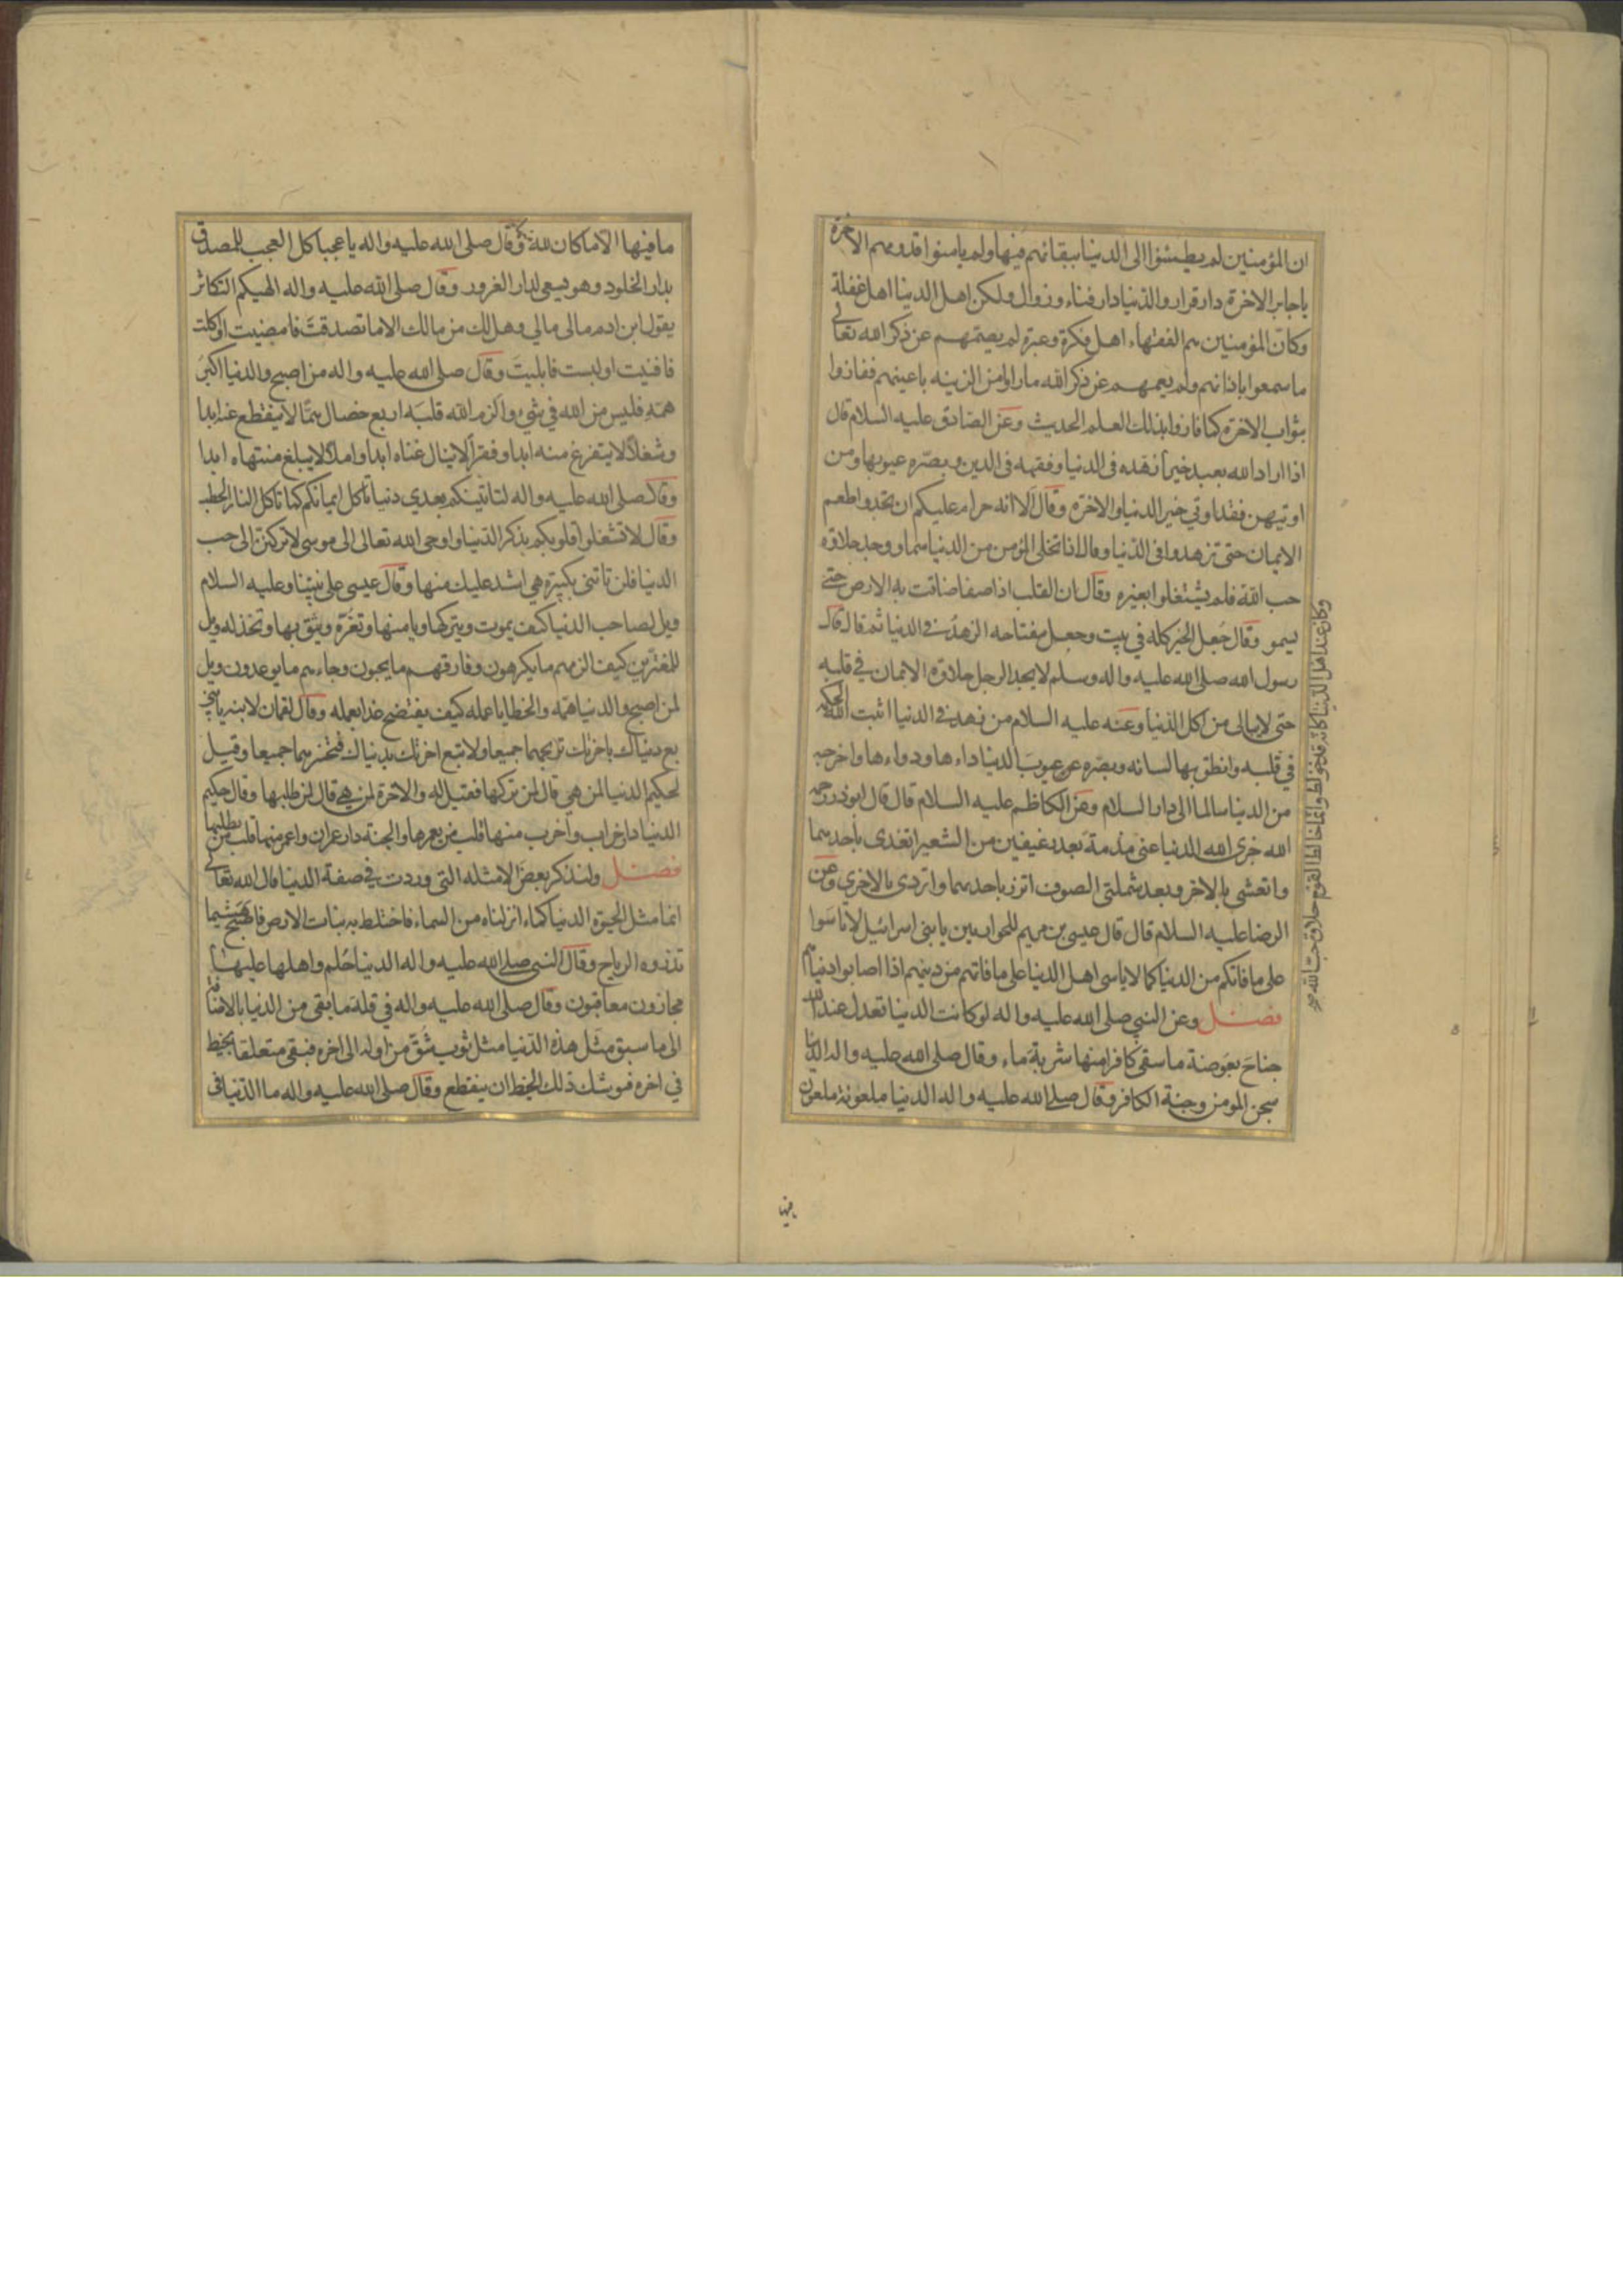 ان المؤمنين لم يطمئنوا الى الدنيا ببقائهم فيها ولم يامنوا قدومهم الاخرة
يا جابر الاخرة دار قرار والدنيا دار فناء وزوال ولكن اهل الدنيا اهل غفلة
وكان المؤمنين هم الفقهاء اهل فكرة وعبرة لم يصمهم عن ذكر الله تعالى
ما سمعوا باذانهم ولم يعمهم عن ذكر الله ما راوا من الزينه باعينهم ففازوا
بثواب الاخرة كما فازوا بذلك العلم الحديث وعن الصادق عليه السلام قال
اذا اراد الله بعبد خيرا زهده في الدنيا وفقهه في الدين وبصره عيوبها ومن
اوتيهن فقد اوتي خير الدنيا والاخرة وقال الا انه حرام عليكم ان تجدوا طعم
الايمان حتى تزهدوا في الدنيا وقال اذا تخلى المؤمن من الدنيا سما ووجد حلاوة
حب الله فلم يشتغلوا بغيره وقال ان القلب اذا صفا ضاقت به الارض حتى
يسمو وقال جعل الخير كله في بيت وجعل مفتاحه الزهد في الدنيا ثم قال قال
رسول الله صلى الله عليه واله وسلم لا يجد الرجل حلاوة الايمان في قلبه
حتى لا يبالي من اكل الدنيا وعنه عليه السلام من زهد في الدنيا اثبت الله الحكمة
في قلبه وانطق بها لسانه وبصره عيوب الدنيا داءها ودواءها واخرجه
من الدنيا سالما الى دار السلام وعن الكاظم عليه السلام قال قال ابوذر رحمه
الله جزى الله الدنيا عني مذمة بعد رغيفين من الشعير اتغدى باحدهما
واتعشى بالاخر وبعد شملتي الصوف اتزر باحديهما واتردى بالاخرى وعن
الرضا عليه السلام قال قال عيسى بن مريم للحواريين يا بني اسرائيل لا تاسوا
على ما فاتكم من الدنيا كما لا ياسى اهل الدنيا على ما فاتهم من دينهم اذا اصابوا دنياهم
فصل وعن النبي صلى الله عليه واله لو كانت الدنيا تعدل عند الله
جناح بعوضة ما سقى كافرا منها شربة ماء وقال صلى الله عليه واله الدنيا
سجن المومن وجنة الكافر وقال صلى الله عليه واله الدنيا ملعونة ملعون
وكان عند اهل الدنيا كانه قد خولط وانما خالط القوم حلاوة حب الله
ما فيها
ما فيها الا ما كان لله وقال صلى الله عليه واله يا عجبا كل العجب للمصدق
بدار الخلود وهو يسعى لدار الغرور وقال صلى الله عليه واله الهيكم التكاثر
يقول ابن ادم مالي مالي وهل لك من مالك الا ما تصدقت فامضيت او اكلت
فافنيت او لبست فابليت وقال صلى الله عليه واله من اصبح والدنيا اكبر
همه فليس من الله في شيء والزم الله قلبه اربع خصال همّا لا ينقطع عنه ابدا
وشغلا لا يتفرغ منه ابدا وفقرا لا ينال غناه ابدا واملا لا يبلغ منتهاه ابدا
وقال صلى الله عليه واله لتاتينكم بعدي دنيا تاكل ايمانكم كما تاكل النار الحطب
وقال لا تشغلوا قلوبكم بذكر الدنيا واوحى الله تعالى الى موسى لا تركنن الى حب
الدنيا فلن تاتني بكبيرة هي اشد عليك منها وقال عيسى على نبينا وعليه السلام
ويل لصاحب الدنيا كيف يموت ويتركها ويامنها وتغره ويثق بها وتخذله ويل
للمغترين كيف الزمهم ما يكرهون وفارقهم ما يحبون وجاءهم ما يوعدون ويل
لمن اصبح والدنيا همه والخطايا عمله كيف يفتضح غدا بعمله وقال لقمان لابنه يا بني
بع دنياك باخرتك تربحهما جميعا ولا تبع اخرتك بدنياك فتخسرهما جميعا وقيل
لحكيم الدنيا لمن هي قال لمن تركها فقيل له والاخرة لمن هي قال لمن طلبها وقال حكيم
الدنيا دار خراب واخرب منها قلب من يعمرها والجنة دار عمران واعمر منها قلب من يطلبها
فصل ولنذكر بعض الامثله التي وردت في صفة الدنيا قال الله تعالى
انما مثل الحيوة الدنيا كماء انزلناه من السماء فاختلط به نبات الارض فاصبح هشيما
تذروه الرياح وقال النبي صلى الله عليه واله الدنيا حلم واهلها عليها
مجازون معاقبون وقال صلى الله عليه واله في قلة ما بقي من الدنيا بالاضافة
الى ما سبق مثل هذه الدنيا مثل ثوب شق من اوله الى اخره فبقي متعلقا بخيط
في اخره فيوشك ذلك الخيط ان ينقطع وقال صلى الله عليه واله ما الدنيا في